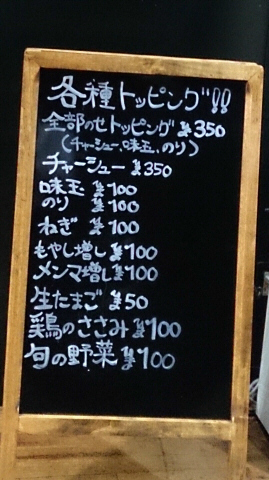 各種トッピング!!
全部のせトッピング ¥350
(チャーシュー、味玉、のり)
チャーシュー ¥350
味玉 ¥100
のり ¥100
ねぎ ¥100
もやし増し ¥100
メンマ増し ¥100
生たまご ¥50
鶏のささみ ¥100
旬の野菜 ¥100